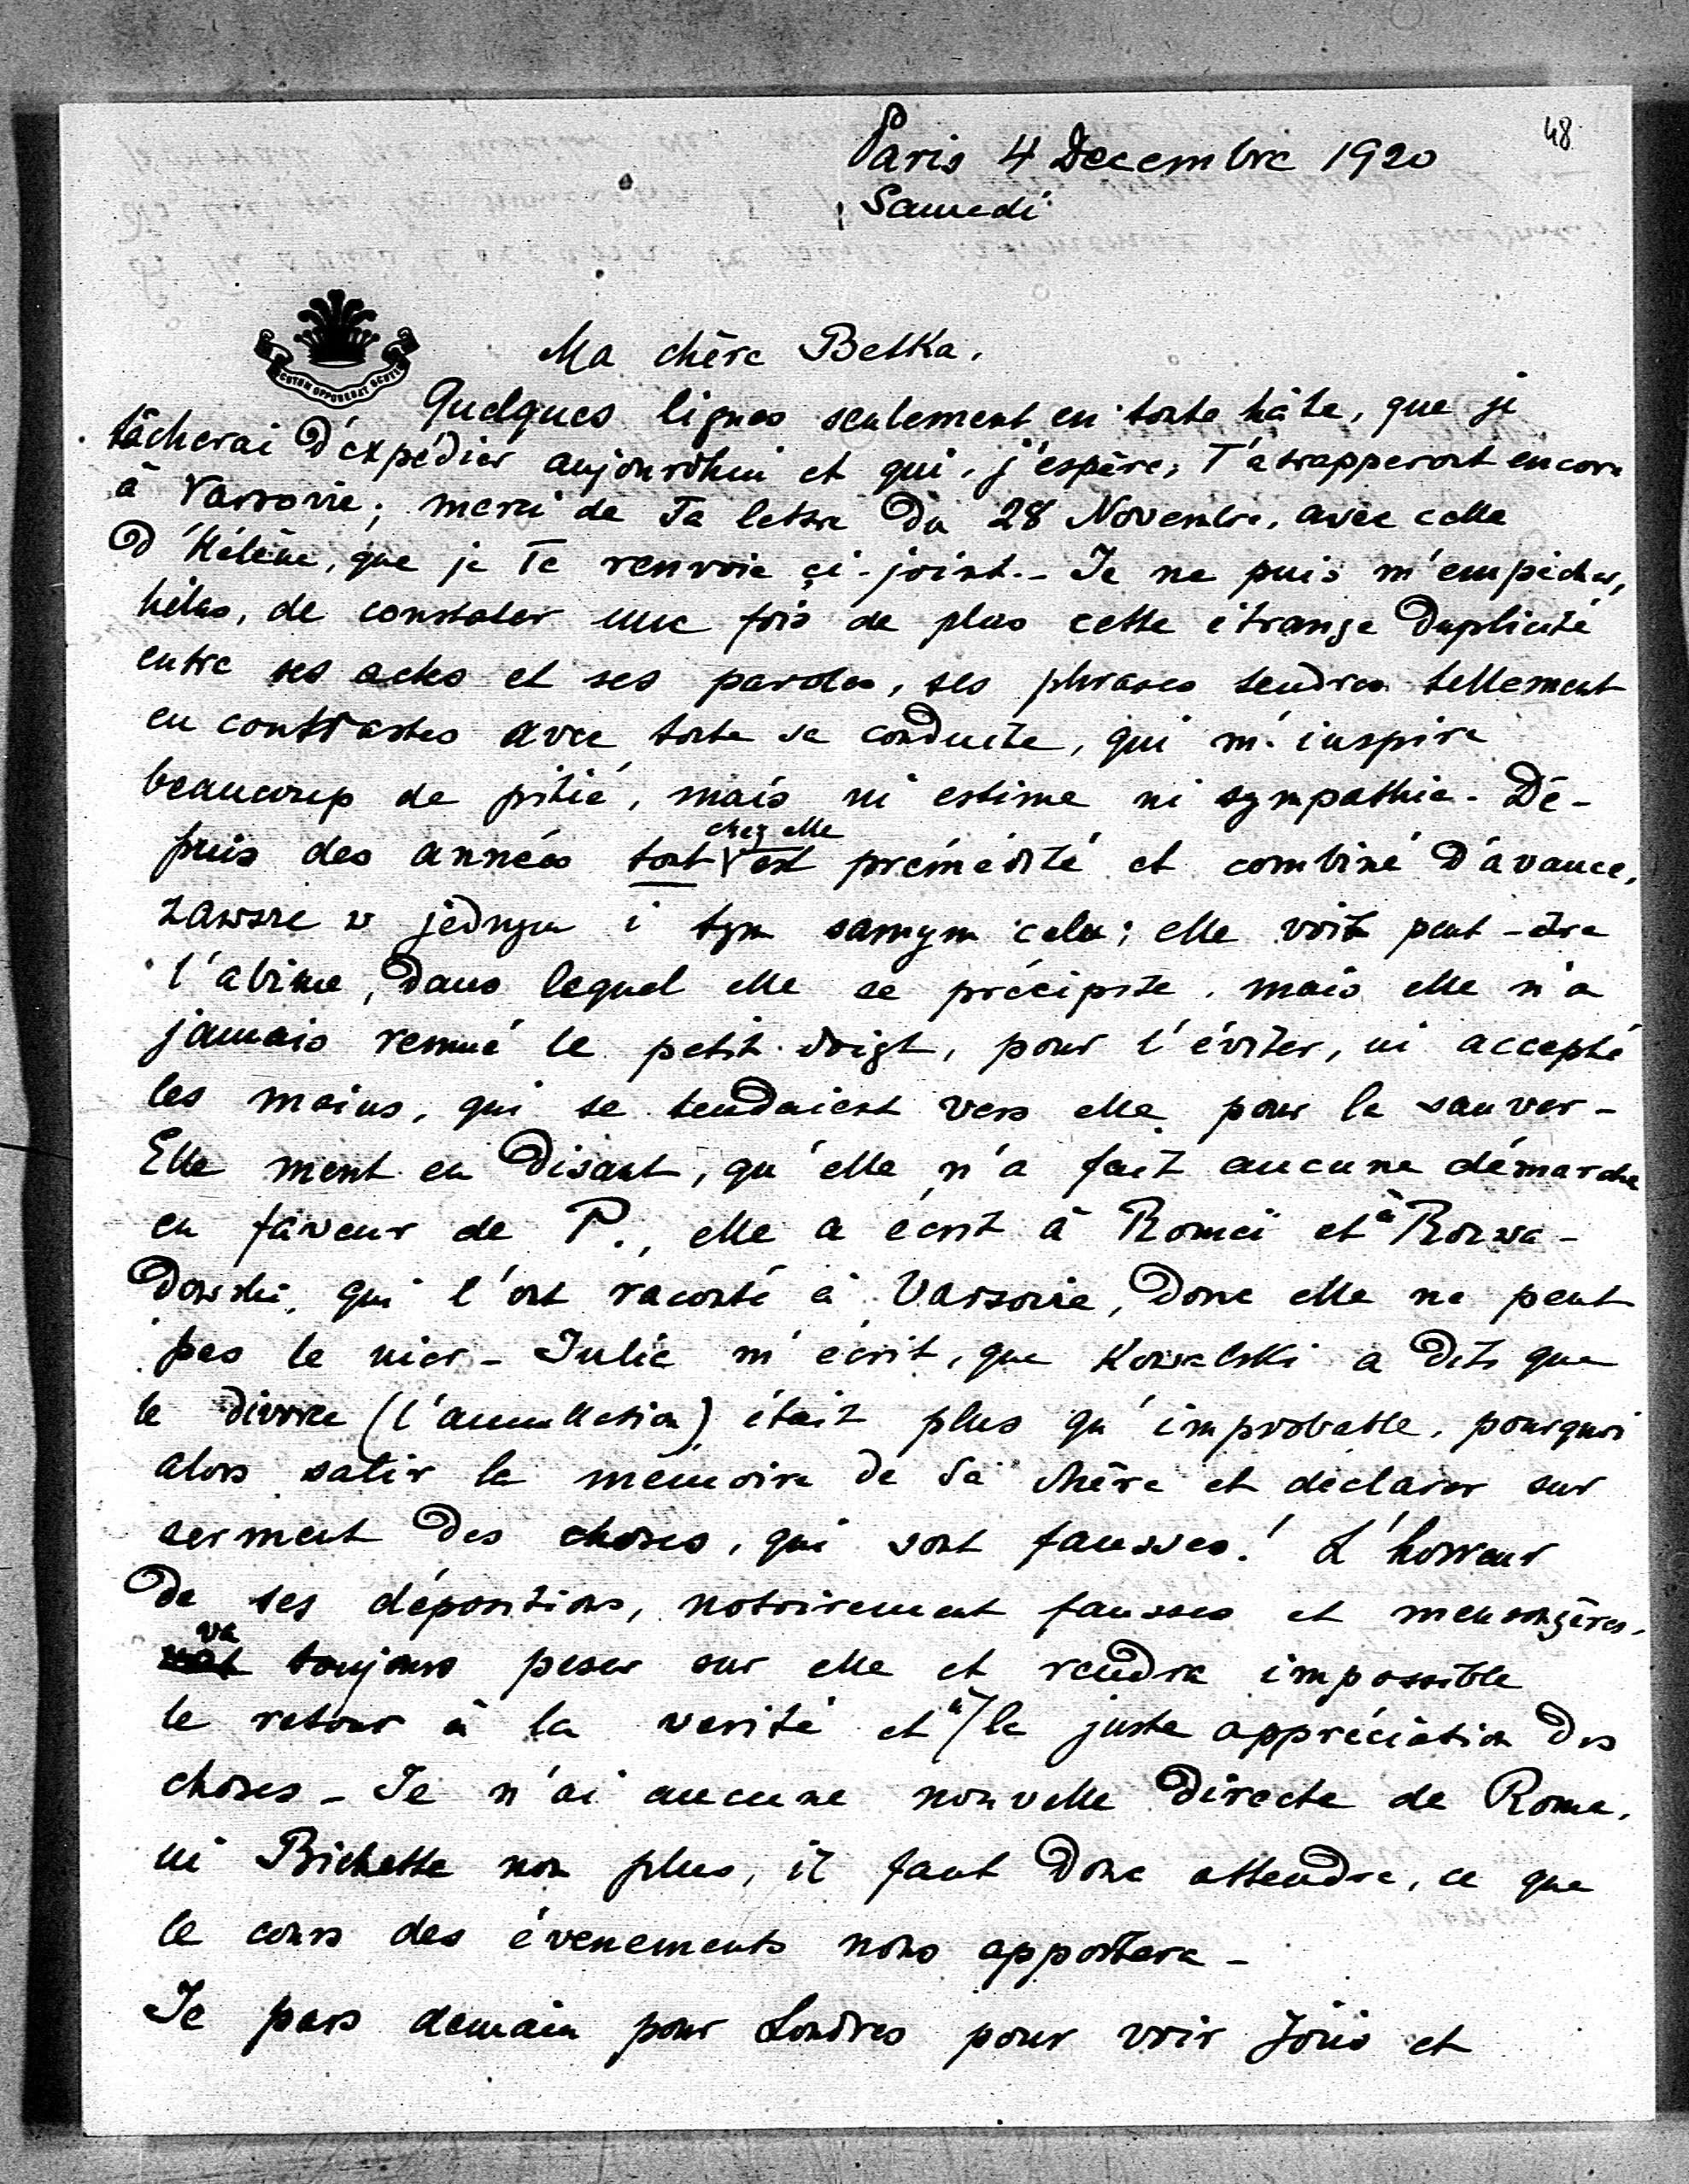 48
Paris 4 Decembre 1920
Samedi
Ma chère Betka.
Quelques lignes seulement en toute hâte, que je
tâcherai d'expédier aujourd'hui et qui, j'espère, T'atrapperont encore
à Varsovie; merci de Ta lettre du 28 Novembre, avec celle
d'Hélène, que je Te renvoie çi-joint. - Je ne puis m'empêcher,
hélas, de constater une fois de plus cette étrange duplicité
entre ses actes et ses paroles, ses phrases tendres tellement
en contrastes avec toute sa conduite, qui m'inspire
beaucoup de pitié, mais ni estime ni sympathie. De-
puis des années tout chez elle est prémédité et combiné d'avance,
zawsze w jednym i tym samym celu; elle voit peut-être
l'abime, dans lequel elle se précipite, mais elle n'a
jamais remué le petit doigt, pour l'éviter, ni accepté
les mains, qui se tendaient vers elle pour la sauver -
Elle ment en disant, qu'elle n'a fait aucune démarche
en faveur de P., elle a écrit à Romei et à Rozwa-
dowski, qui l'ont raconté à Varsovie, donc elle ne peut
pas le nier - Julie m'écrit, que Kowalski a dit, que
le divorce (l'annullation) était plus qu'improbable, pourquoi
alors salir la mémoire de Sa Mère et déclarer sur
serment des choses, qui sont fausses! L'horreur
de ses dépositions, notoirement fausses et mensongères,
va toujours peser sur elle et rendra impossible
le retour à la verité et à la juste appréciation des
choses - Je n'ai aucune nouvelle directe de Rome,
ni Bichette non plus, il faut donc attendre, ce que
le cours des évenements nous apportera -
Je pars demain pour Londres pour voir Joûs et